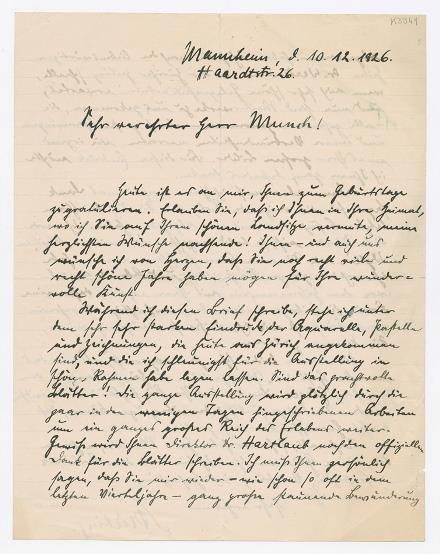 K3341
Mannheim, d. 10.12.1926.
Haardtstr. 26.
Sehr verehrter Herr Munch!
Heute ist es an mir, Ihnen zum Geburtstage
zu gratulieren. Erlauben Sie, daß ich Ihnen in Ihre Heimat,
wo ich Sie auf Ihrem schönen Landsitze vermute, meine
herzlichsten Wünsche nachsende! Ihnen – und auch uns
wünsche ich von Herzen, daß Sie noch recht viele und
recht schöne Jahre haben mögen für Ihre wunder-
volle Kunst.
Während ich diesen Brief schreibe, stehe ich unter
dem sehr sehr starken Eindruck der Aquarelle, Pastelle
und Zeichnungen, die heute aus Zürich angekommen
sind, und die ich schleunigst für die Ausstellung in
schöne Rahmen habe legen lassen. Sind das prachtvolle
Blätter! Die ganze Ausstellung wird plötzlich durch die
paar in den wenigen Tagen hingeschriebenen Arbeiten
um ein ganzes großes Reich des Erlebens weiter.
Gewiß wird Ihnen Direktor Dr. Hartlaub noch den offiziellen
Dank für die Blätter schreiben. Ich muß Ihnen persönlich
sagen, daß Sie mir wieder – wie schon so oft in dem
letzten Vierteljahre – ganz große staunende Bewunderung